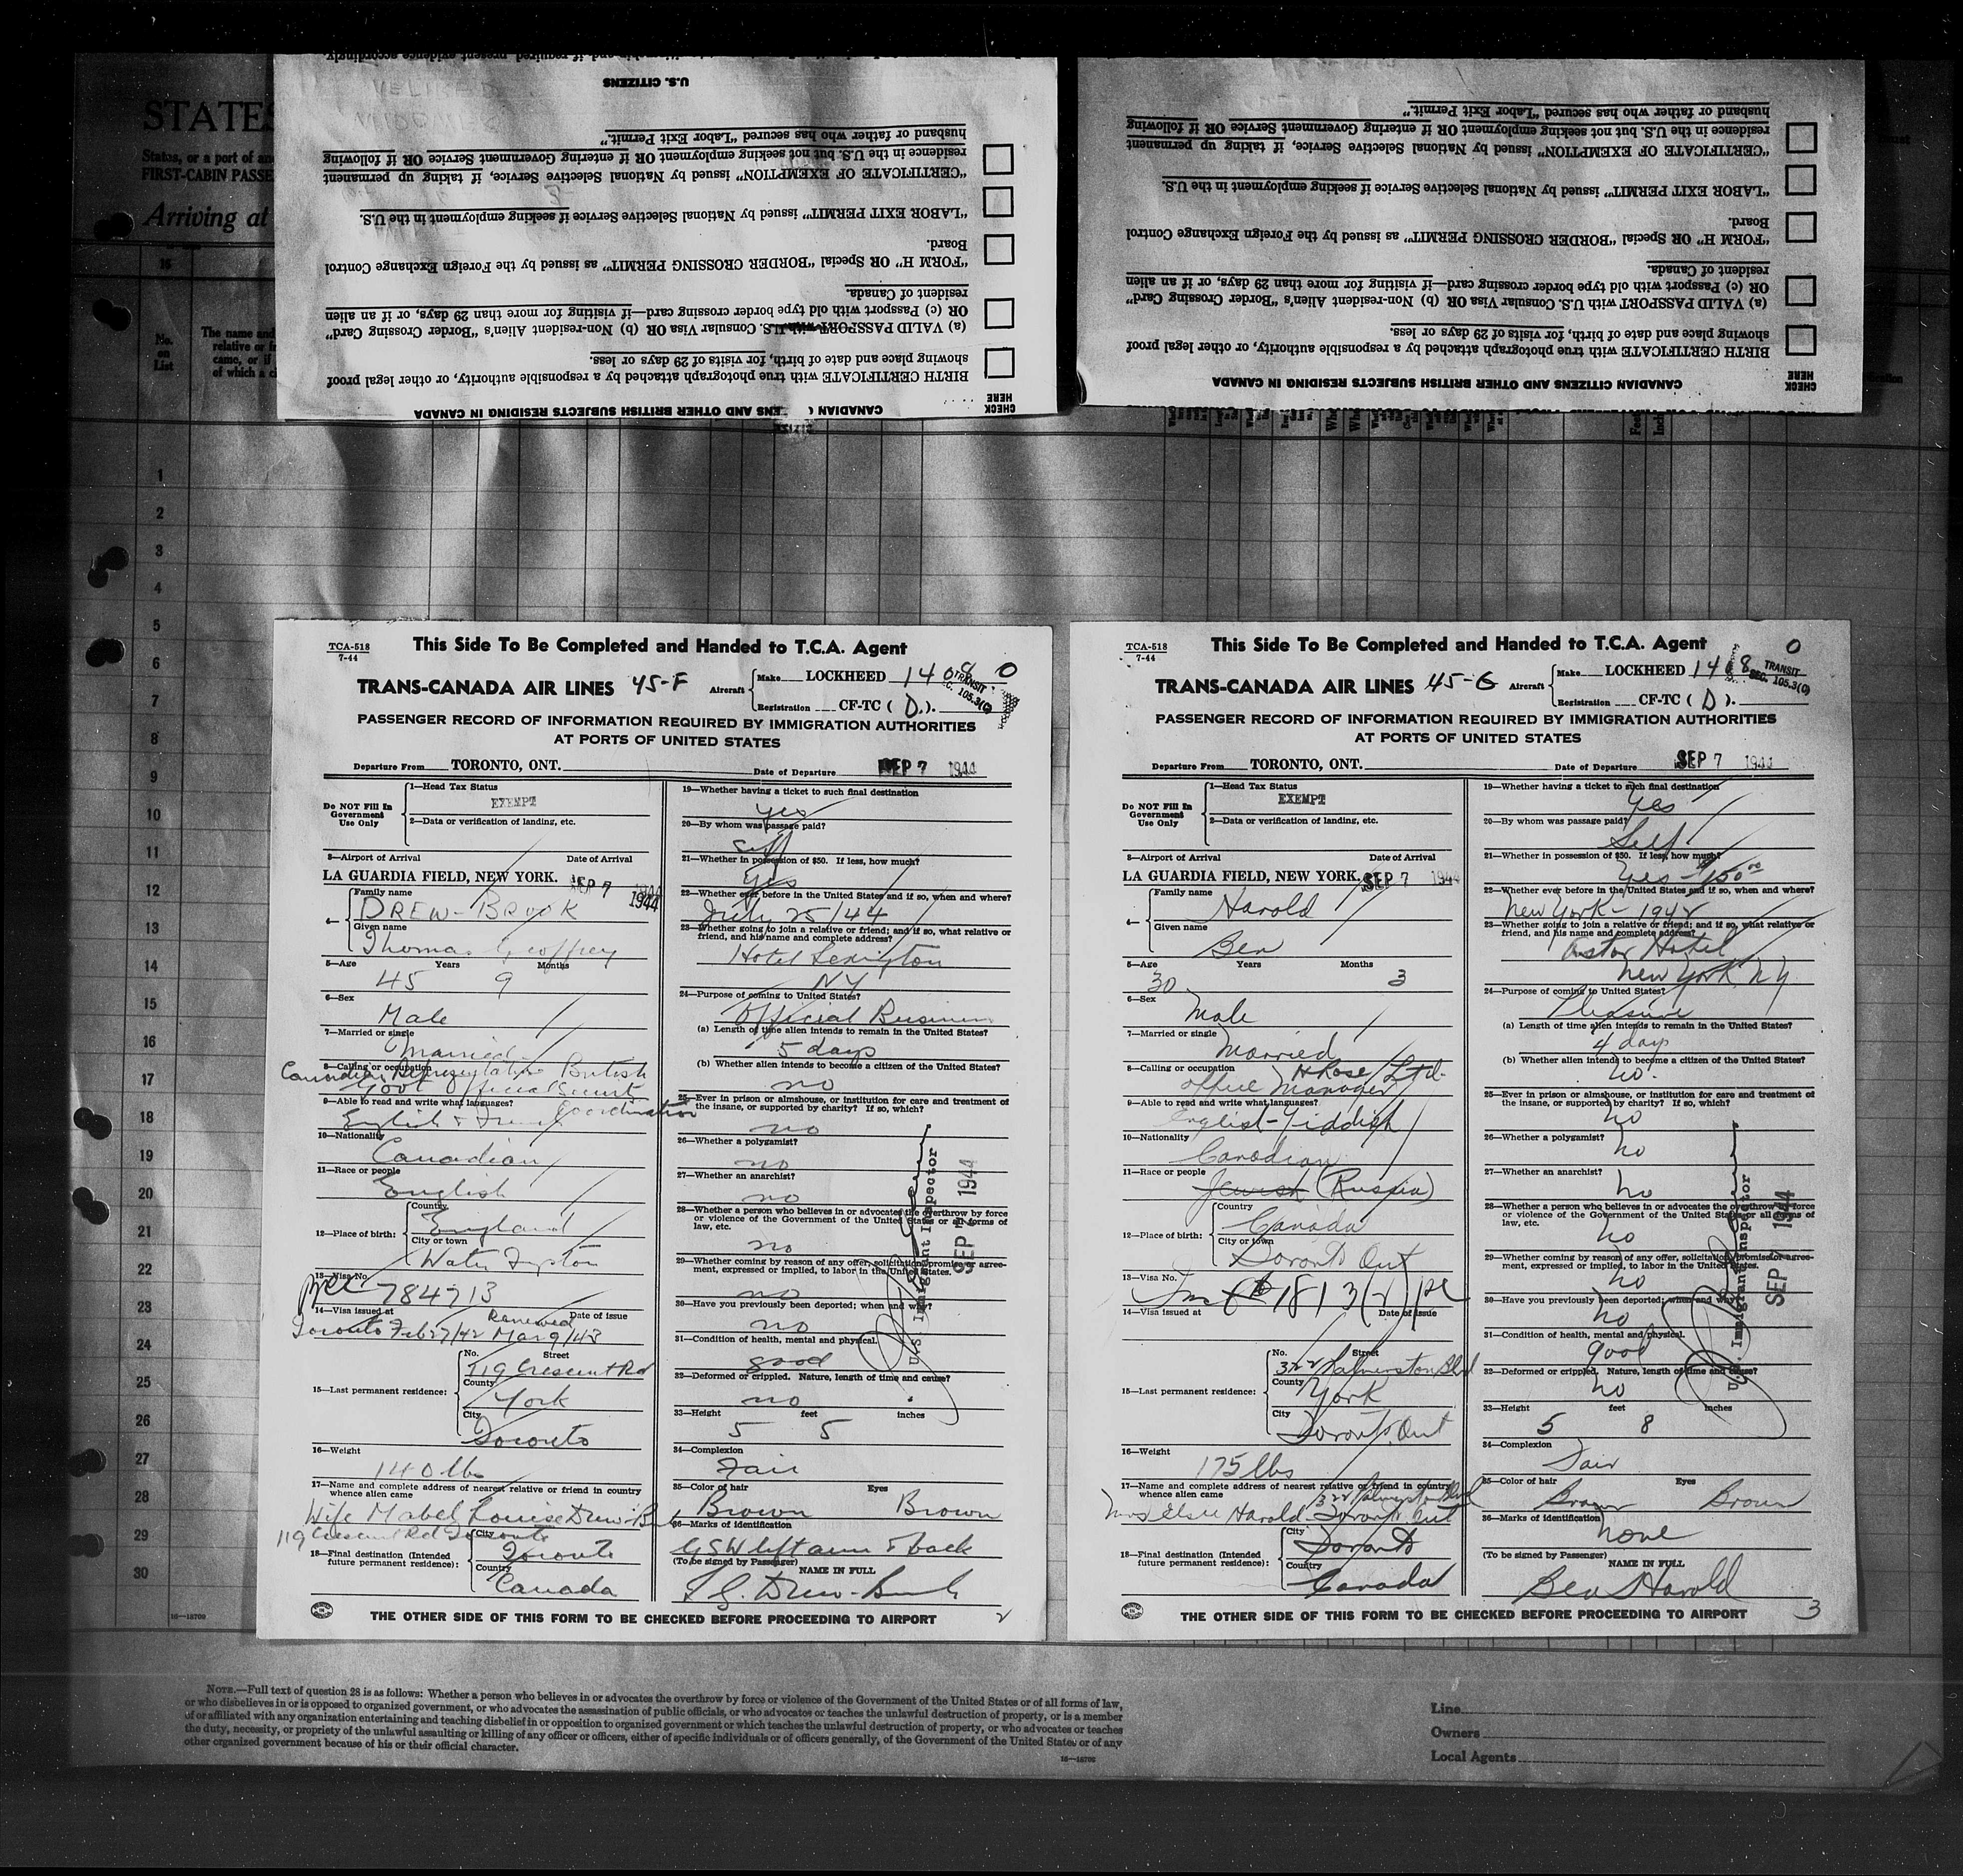 STATES
States, or a port of an
FIRST-CABIN PASSE
Arriving at
No. on List
The name and
relative or fr
came, or if
of which a ci
U.S. CITIZENS
husband or father who has secured "Labor Exit Permit."
residence in the U.S. but not seeking employment OR if entering Government Service OR if following
"CERTIFICATE OF EXEMPTION" issued by National Selective Service, if taking up permanent
"LABOR EXIT PERMIT" issued by National Selective Service if seeking employment in the U.S.
Board.
"FORM H" OR Special "BORDER CROSSING PERMIT" as issued by the Foreign Exchange Control
resident of Canada.
OR (c) Passport with old type border crossing card—if visiting for more than 29 days, or if an alien
(a) VALID PASSPORT with U.S. Consular Visa OR (b) Non-resident Alien's "Border Crossing Card"
showing place and date of birth, for visits of 29 days or less.
BIRTH CERTIFICATE with true photograph attached by a responsible authority, or other legal proof
CHECK HERE
CANADIAN ENS AND OTHER BRITISH SUBJECTS RESIDING IN CANADA
husband or father who has secured "Labor Exit Permit."
residence in the U.S. but not seeking employment OR if entering Government Service OR if following
"CERTIFICATE OF EXEMPTION" issued by National Selective Service, if taking up permanent
"LABOR EXIT PERMIT" issued by National Selective Service if seeking employment in the U.S.
Board.
"FORM H" OR Special "BORDER CROSSING PERMIT" as issued by the Foreign Exchange Control
resident of Canada.
OR (c) Passport with old type border crossing card—if visiting for more than 29 days, or if an alien
(a) VALID PASSPORT with U.S. Consular Visa OR (b) Non-resident Alien's "Border Crossing Card"
showing place and date of birth, for visits of 29 days or less.
BIRTH CERTIFICATE with true photograph attached by a responsible authority, or other legal proof
CHECK HERE
CANADIAN CITIZENS AND OTHER BRITISH SUBJECTS RESIDING IN CANADA
1
2
3
4
5
6
7
8
9
10
11
12
13
14
15
16
17
18
19
20
21
22
23
24
25
26
27
28
29
30
TCA-518
7-44
This Side To Be Completed and Handed to T.C.A. Agent
TRANS-CANADA AIR LINES 45-F Aircraft Make LOCKHEED 1408 0
Registration CF-TC ( D. ).
TRANSIT
SEC. 105.3(C)
PASSENGER RECORD OF INFORMATION REQUIRED BY IMMIGRATION AUTHORITIES
AT PORTS OF UNITED STATES
Departure From TORONTO, ONT. Date of Departure SEP 7 1944
Do NOT Fill In Government Use Only
1—Head Tax Status
EXEMPT
2—Data or verification of landing, etc.
3—Airport of Arrival Date of Arrival
LA GUARDIA FIELD, NEW YORK. SEP 7 1944
4— Family name
DREW-BROOK
Given name
Thomas Geoffrey
5—Age Years Months
45 9
6—Sex
Male
7—Married or single
Married
8—Calling or occupation
Canadian Representative British
Govt Official Security
Coordination
9—Able to read and write what languages?
English & French
10—Nationality
Canadian
11—Race or people
English
12—Place of birth: Country
England
City or town
Water
13—Visa No.
784713
14—Visa issued at Date of issue
Toronto Feb 27/42 Renewed Mar 9/43
15—Last permanent residence: No. Street
119 Crescent Rd
County
York
City
Toronto
16—Weight
140 lbs
17—Name and complete address of nearest relative or friend in country
whence alien came
Wife Mabel Louise Drew-B
119 Crescent Rd Toronto
18—Final destination (Intended
future permanent residence): City
Toronto
Country
Canada
19—Whether having a ticket to such final destination
Yes
20—By whom was passage paid?
Self
21—Whether in possession of $50. If less, how much?
Yes
22—Whether ever before in the United States and if so, when and where?
July 25/44
23—Whether going to join a relative or friend; and if so, what relative or
friend, and his name and complete address?
Hotel Lexington
NY
24—Purpose of coming to United States?
Official Business
(a) Length of time alien intends to remain in the United States?
5 days
(b) Whether alien intends to become a citizen of the United States?
no
25—Ever in prison or almshouse, or institution for care and treatment of
the insane, or supported by charity? If so, which?
no
26—Whether a polygamist?
no
27—Whether an anarchist?
no
28—Whether a person who believes in or advocates the overthrow by force
or violence of the Government of the United States or all forms of
law, etc.
no
29—Whether coming by reason of any offer, solicitation, promise or agree-
ment, expressed or implied, to labor in the United States.
no
30—Have you previously been deported; when and why?
no
31—Condition of health, mental and physical.
good
32—Deformed or crippled. Nature, length of time and cause?
no
33—Height feet inches
5 5
34—Complexion
Fair
35—Color of hair Eyes
Brown Brown
36—Marks of identification
GSW left arm & back
(To be signed by Passenger) NAME IN FULL
T G. Drew-Brook
U.S. Immigrant Inspector
SEP 7 1944
THE OTHER SIDE OF THIS FORM TO BE CHECKED BEFORE PROCEEDING TO AIRPORT
2
TCA-518
7-44
This Side To Be Completed and Handed to T.C.A. Agent
TRANS-CANADA AIR LINES 45-G Aircraft Make LOCKHEED 1408 0
Registration CF-TC ( D ).
TRANSIT
SEC. 105.3(C)
PASSENGER RECORD OF INFORMATION REQUIRED BY IMMIGRATION AUTHORITIES
AT PORTS OF UNITED STATES
Departure From TORONTO, ONT. Date of Departure SEP 7 1944
Do NOT Fill In Government Use Only
1—Head Tax Status
EXEMPT
2—Data or verification of landing, etc.
3—Airport of Arrival Date of Arrival
LA GUARDIA FIELD, NEW YORK. SEP 7 1944
4— Family name
Harold
Given name
Ben
5—Age Years Months
30 3
6—Sex
Male
7—Married or single
Married
8—Calling or occupation
H Rose Ltd.
office Manager
9—Able to read and write what languages?
English-Yiddish
10—Nationality
Canadian
11—Race or people
Jewish (Russia)
12—Place of birth: Country
Canada
City or town
Toronto Ont
13—Visa No.
1813
14—Visa issued at Date of issue
15—Last permanent residence: No. Street
322 Palmerston Blvd
County
York
City
Toronto, Ont
16—Weight
175 lbs
17—Name and complete address of nearest relative or friend in country
whence alien came
322 Palmerston Blvd
Mrs Elsie Harold- Toronto Ont
18—Final destination (Intended
future permanent residence): City
Toronto
Country
Canada
19—Whether having a ticket to such final destination
Yes
20—By whom was passage paid?
Self
21—Whether in possession of $50. If less, how much?
Yes - $150.00
22—Whether ever before in the United States and if so, when and where?
New York - 1942
23—Whether going to join a relative or friend; and if so, what relative or
friend, and his name and complete address?
Astor Hotel
New York NY
24—Purpose of coming to United States?
Pleasure
(a) Length of time alien intends to remain in the United States?
4 days
(b) Whether alien intends to become a citizen of the United States?
no.
25—Ever in prison or almshouse, or institution for care and treatment of
the insane, or supported by charity? If so, which?
no
26—Whether a polygamist?
no
27—Whether an anarchist?
no
28—Whether a person who believes in or advocates the overthrow by force
or violence of the Government of the United States or all forms of
law, etc.
no
29—Whether coming by reason of any offer, solicitation, promise or agree-
ment, expressed or implied, to labor in the United States.
no
30—Have you previously been deported; when and why?
no
31—Condition of health, mental and physical.
good
32—Deformed or crippled. Nature, length of time and cause?
no
33—Height feet inches
5 8
34—Complexion
Fair
35—Color of hair Eyes
Brown Brown
36—Marks of identification
none
(To be signed by Passenger) NAME IN FULL
Ben Harold
U.S. Immigrant Inspector
SEP 7 1944
THE OTHER SIDE OF THIS FORM TO BE CHECKED BEFORE PROCEEDING TO AIRPORT
3
16—18700
NOTE.—Full text of question 28 is as follows: Whether a person who believes in or advocates the overthrow by force or violence of the Government of the United States or of all forms of law,
or who disbelieves in or is opposed to organized government, or who advocates the assassination of public officials, or who advocates or teaches the unlawful destruction of property, or is a member
of or affiliated with any organization entertaining and teaching disbelief in or opposition to organized government or which teaches the unlawful destruction of property, or who advocates or teaches
the duty, necessity, or propriety of the unlawful assaulting or killing of any officer or officers, either of specific individuals or of officers generally, of the Government of the United States or of any
other organized government because of his or their official character.
Line
Owners
Local Agents